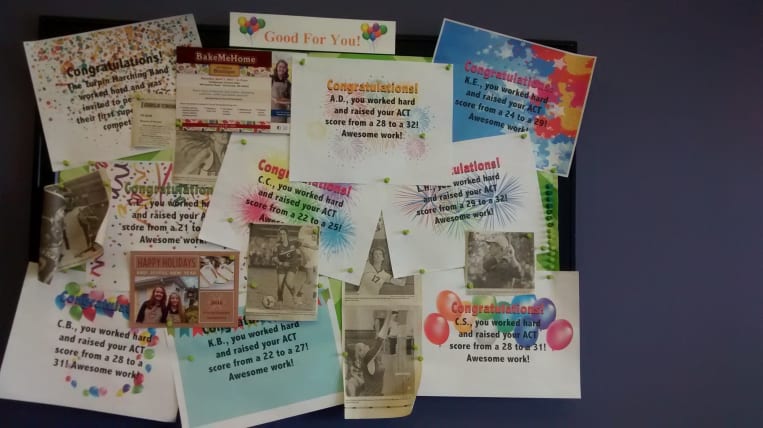 Good For You!
Congratulations!
The Turpin Marching Band
worked hard and was
invited to
their first
BakeMeHome
Congratulations!
A.D., you worked hard
and raised your ACT
score from a 28 to a 32!
Awesome work!
Congratulations!
K.E., you worked hard
and raised your ACT
score from a 24 to a 29!
Awesome work!
Congratulations
you worked hard
and raised your
score from a 21 to
Awesome work!
Congratulations!
C.C., you worked hard
and raised your ACT
score from a 22 to a 25!
Awesome work!
Congratulations!
L.B., you worked hard
and raised your ACT
score from a 29 to a 32!
Awesome work!
HAPPY HOLIDAYS
C.B., you worked hard
and raised your ACT
score from a 28 to a
31! Awesome work!
K.B., you worked hard
and raised your ACT
score from a 22 to a 27!
Awesome work!
17
Congratulations!
C.S., you worked hard
and raised your ACT
score from a 28 to a 31!
Awesome work!